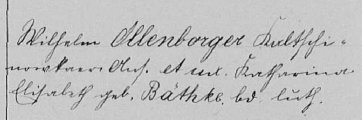 Wilhelm Ellenborger Kultschi-
nowkaer Ans. et ux. Katharina
Elisabeth geb. Bäthke, bd. luth.